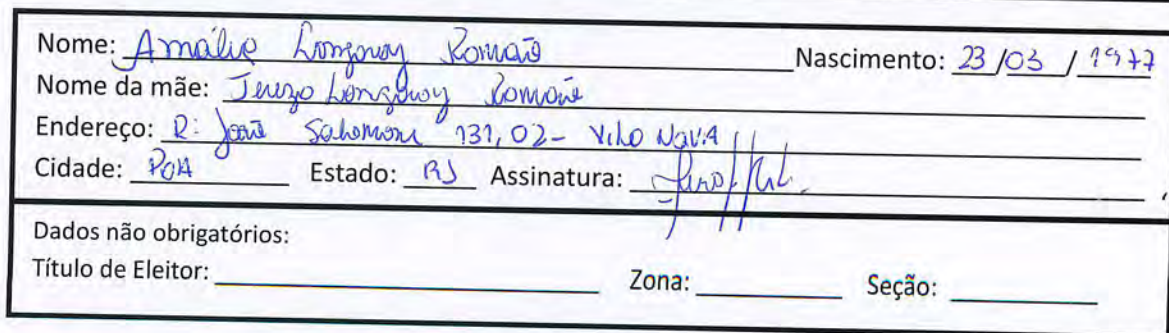 Nome: Amália Longaray Romão Nascimento: 23/03/1977
Nome da mãe: Tereza Longaray Romão
Endereço: R: João Salomoni 131,02- Vila Nova
Cidade: POA Estado: RS Assinatura:
Dados não obrigatórios:
Título de Eleitor: Zona: Seção: